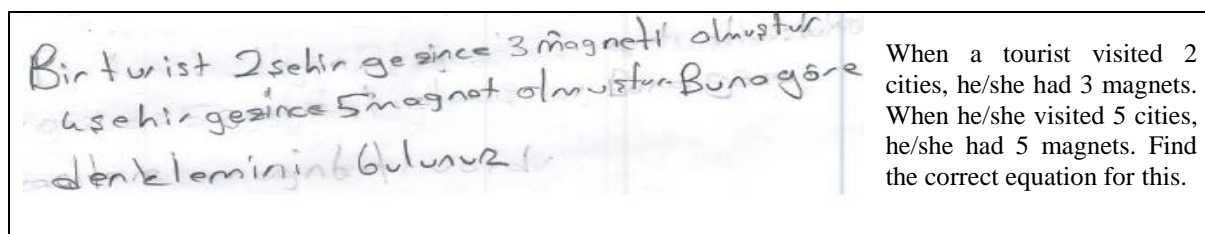 Bir turist 2 sehir gezince 3 magneti olmuştur
4 sehir gezince 5 magnet olmuştur. Buna göre
denkleminini bulunuz.
When a tourist visited 2
cities, he/she had 3 magnets.
When he/she visited 5 cities,
he/she had 5 magnets. Find
the correct equation for this.